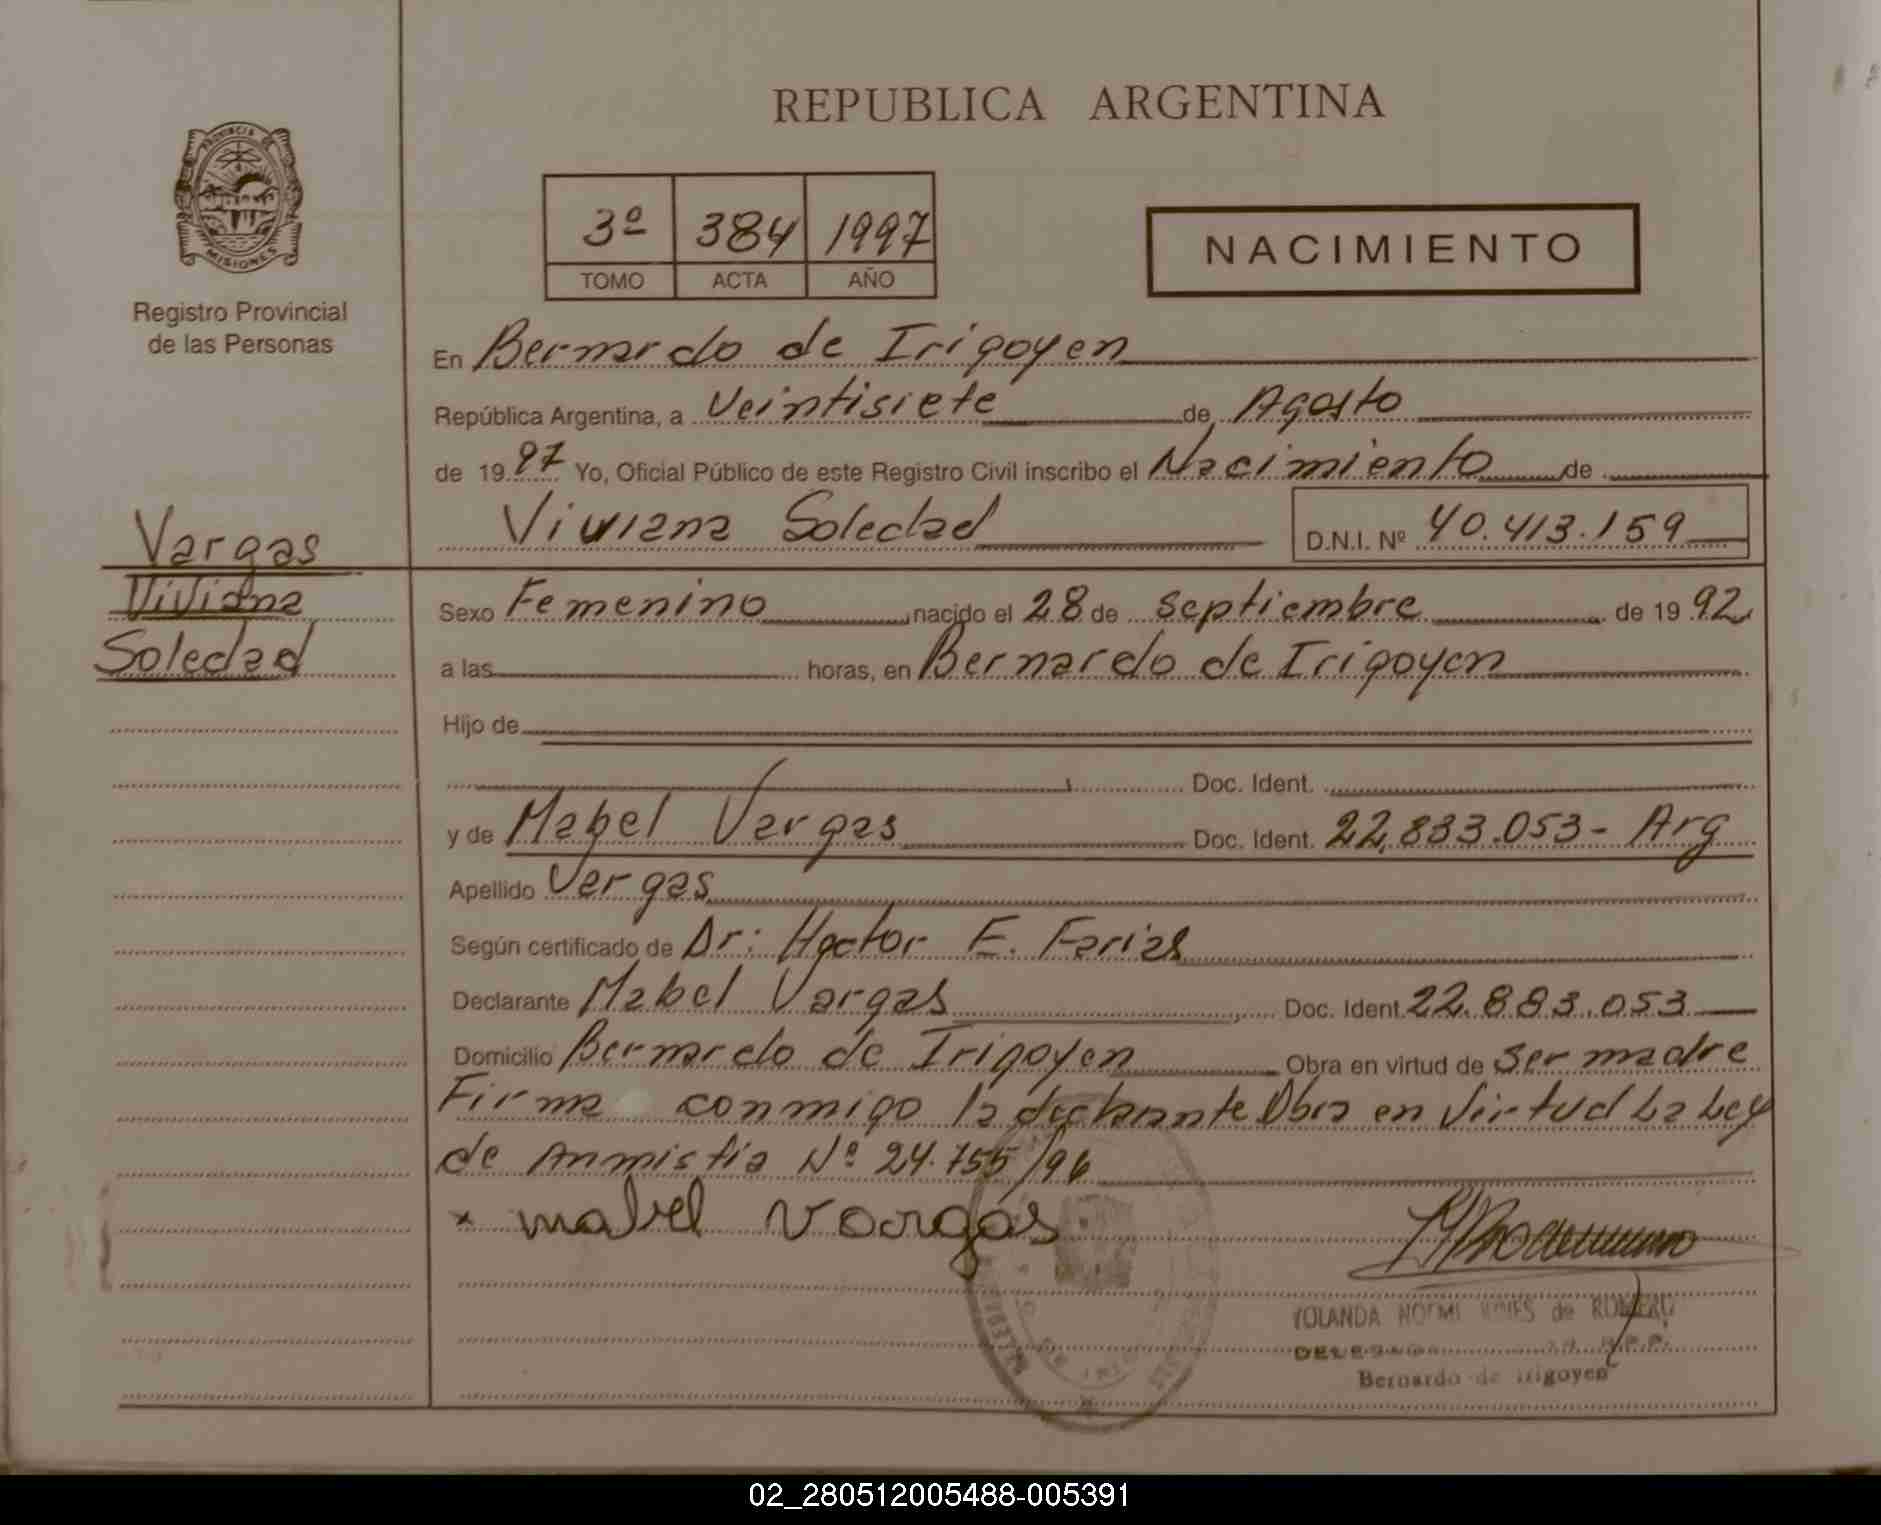 REPUBLICA ARGENTINA
PROVINCIA
MISIONES
Registro Provincial
de las Personas
3º 384 1997
TOMO ACTA AÑO
NACIMIENTO
En Bernardo de Irigoyen
República Argentina, a Veintisiete de Agosto
de 19 97 Yo, Oficial Público de este Registro Civil inscribo el Nacimiento de
Viviana Soledad D.N.I. Nº 40.413.159
Vargas
Viviana
Soledad
Sexo Femenino nacido el 28 de Septiembre de 19 92
a las horas, en Bernardo de Irigoyen
Hijo de
Doc. Ident.
y de Mabel Vargas Doc. Ident. 22.833.053- Arg
Apellido Vargas
Según certificado de Dr: Hector E. Farias
Declarante Mabel Vargas Doc. Ident. 22.883.053
Domicilio Bernardo de Irigoyen Obra en virtud de ser madre
Firma conmigo la declarante Obra en Virtud La Ley
de Anmistia Nº 24.755/96
x mabel Vargas
YOLANDA NOEMI de
Bernardo de Irigoyen
02_280512005488-005391